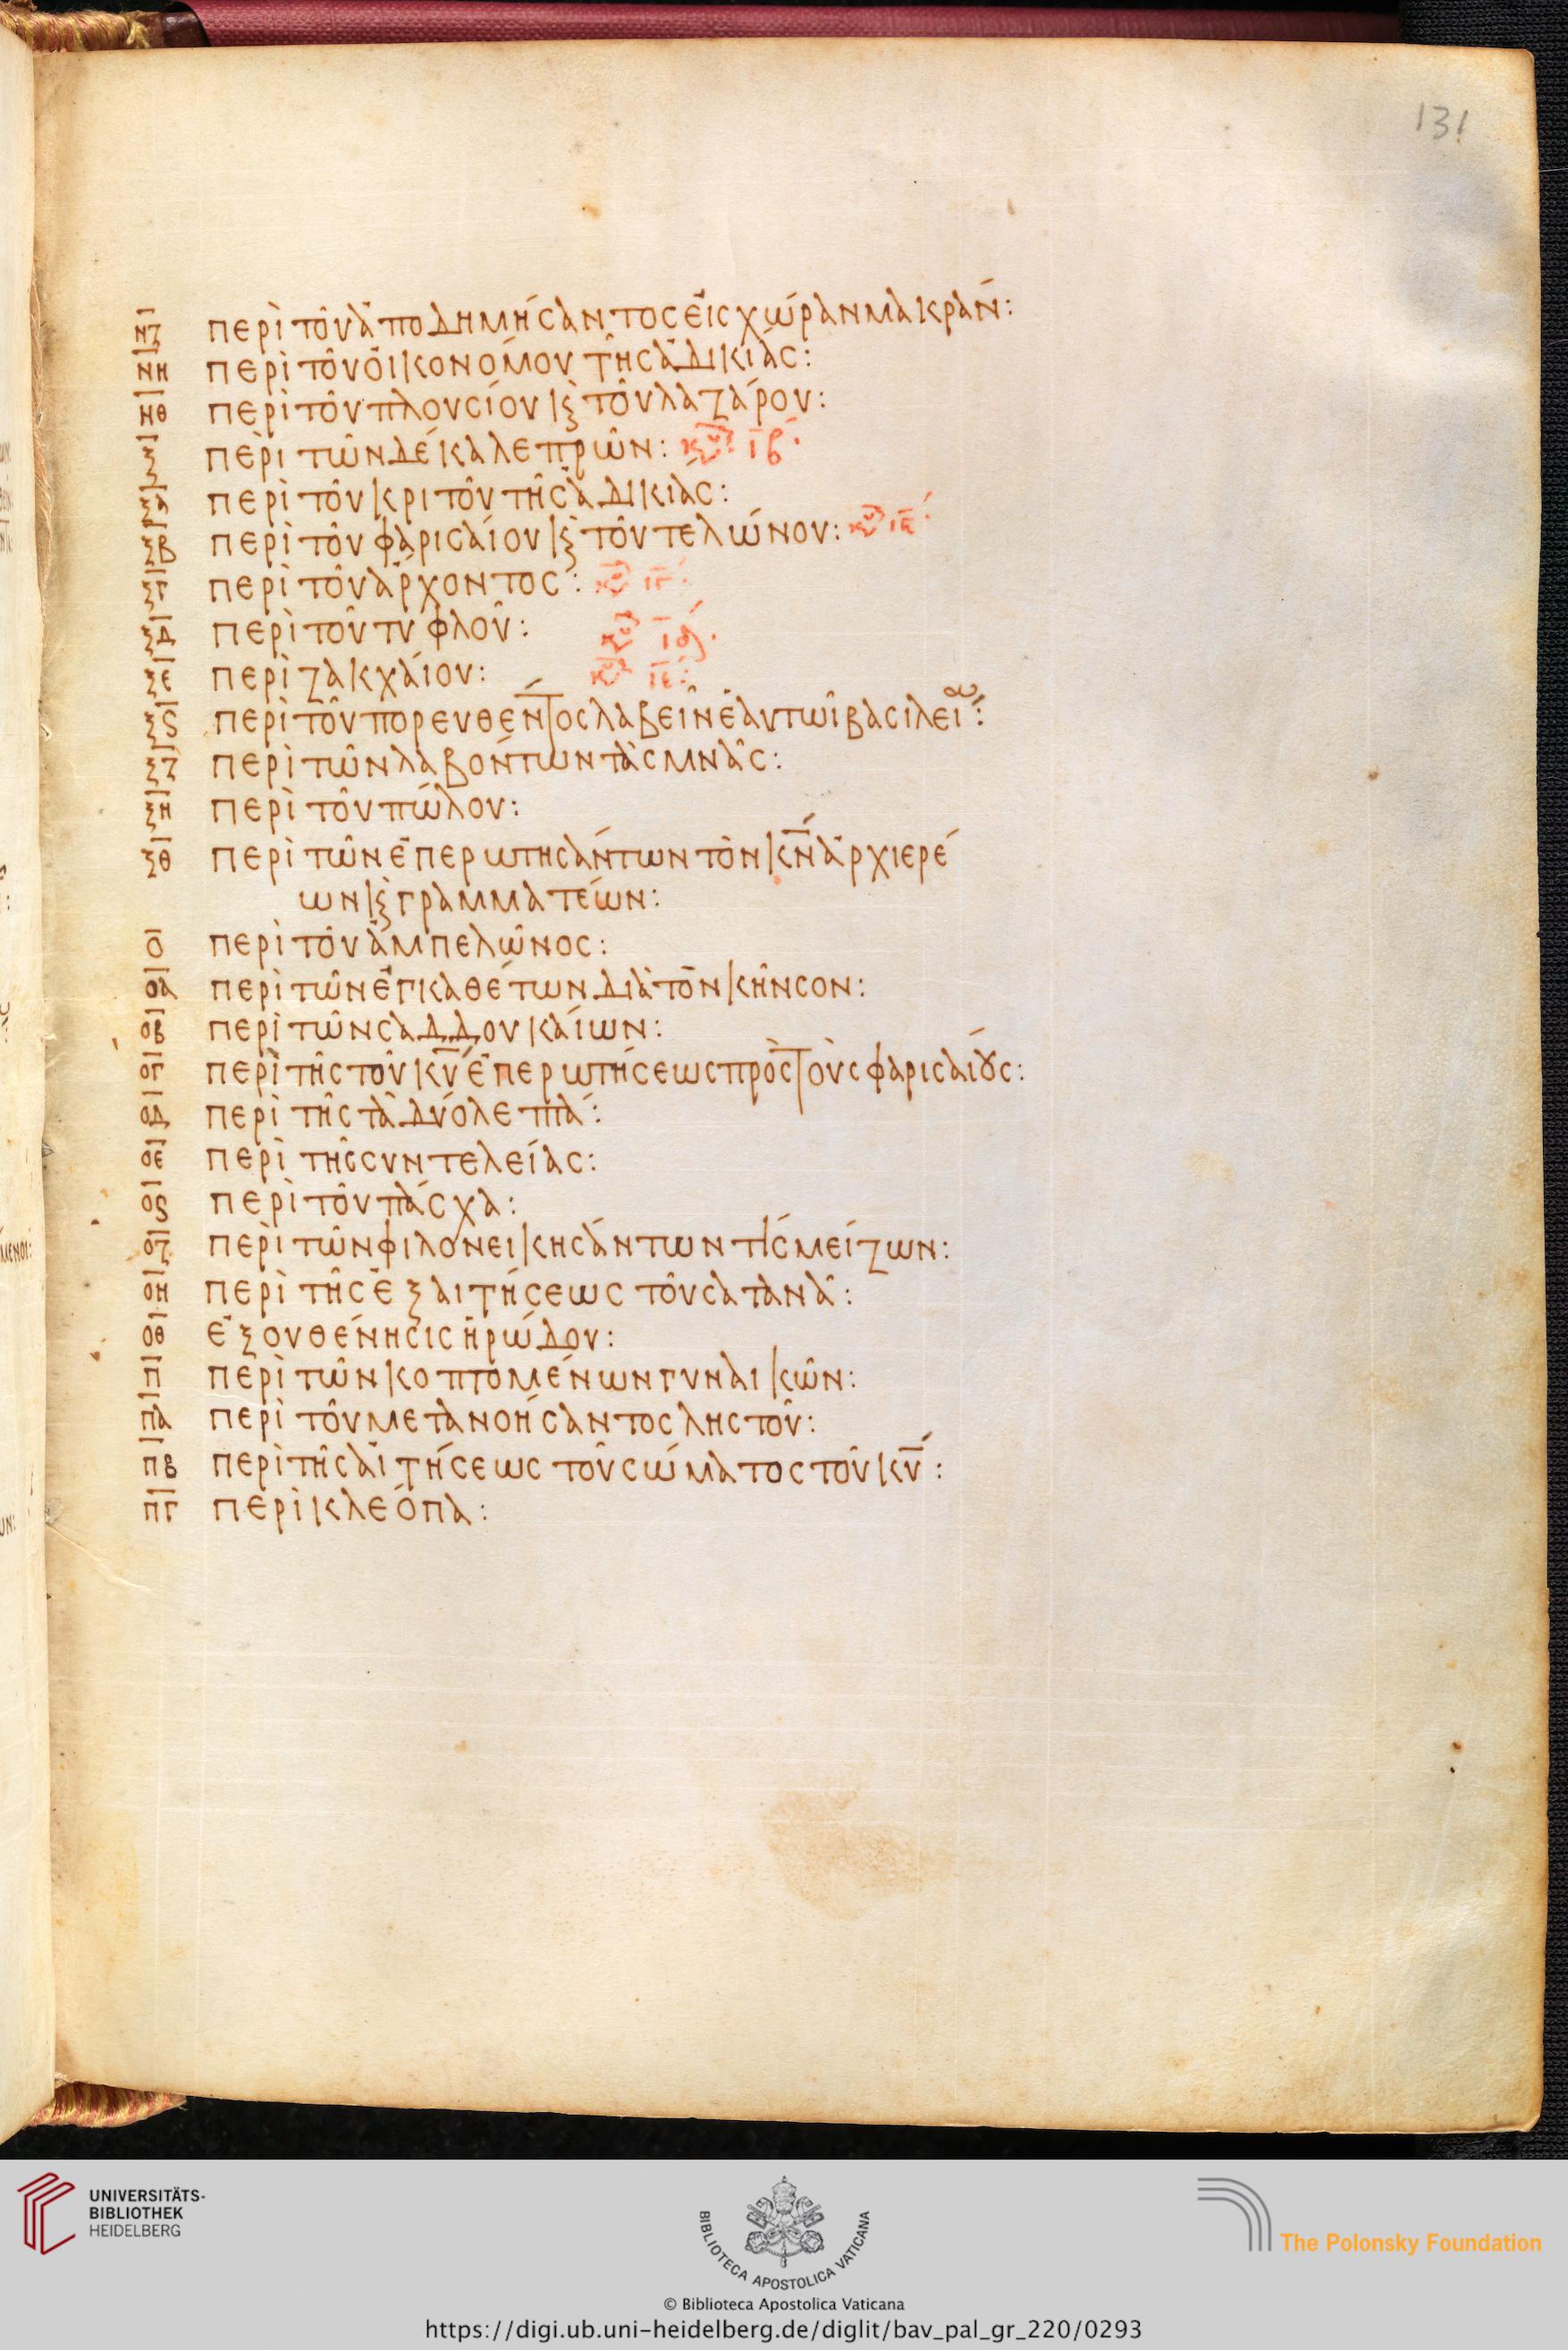 131
ν̅ζ̅ περὶ τοῦ ἀποδημήσαντος εἰς χώραν μακράν:
ν̅η̅ περὶ τοῦ οἰκονόμου τῆς ἀδικίας:
ν̅θ̅ περὶ τοῦ πλουσίου κ̣ὶ τοῦ λαζάρου:
ξ̅ περὶ τῶν δέκα λεπρῶν: κυ ι̅β̅
ξ̅α̅ περὶ τοῦ κριτοῦ τῆς ἀδικίας:
ξ̅β̅ περὶ τοῦ φαρισαίου κ̣ὶ τοῦ τελώνου: κυ ι̅ϛ̅
ξ̅γ̅ περὶ τοῦ ἄρχοντος: κυ ι̅γ̅
ξ̅δ̅ περὶ τοῦ τυφλοῦ: κυ ι̅δ̅
ξ̅ε̅ περὶ ζακχαίου: κυ ι̅ε̅
ξ̅ϛ̅ περὶ τοῦ πορευθέντος λαβεῖν ἑαυτῶι βασιλεί:
ξ̅ζ̅ περὶ τῶν λαβόντων τὰς μνᾶς:
ξ̅η̅ περὶ τοῦ πώλου:
ξ̅θ̅ περὶ τῶν ἐπερωτησάντων τὸν κ̅ν̅ ἀρχιερέ
ων κ̣ὶ γραμματέων:
ο̅ περὶ τοῦ ἀμπελῶνος:
ο̅α̅ περὶ τῶν ἐγκαθέτων διὰ τὸν κῆνσον:
ο̅β̅ περὶ τῶν σαδδουκαίων:
ο̅γ̅ περὶ τῆς τοῦ κ̅υ̅ ἐπερωτήσεως πρὸς τοὺς φαρισαίους:
ο̅δ̅ περὶ τῆς τὰ δύο λεπτά:
ο̅ε̅ περὶ τῆς συντελείας:
ο̅ϛ̅ περὶ τοῦ πάσχα:
ο̅ζ̅ περὶ τῶν φιλονεικησάντων τίς μείζων:
ο̅η̅ περὶ τῆς ἐξαιτήσεως τοῦ σατανᾶ:
ο̅θ̅ ἐξουθένησις ἡρώδου:
π̅ περὶ τῶν κοπτομένων γυναικῶν:
π̅α̅ περὶ τοῦ μετανοήσαντος ληστοῦ:
π̅β̅ περὶ τῆς αἰτήσεως τοῦ σώματος τοῦ κ̅υ̅:
π̅γ̅ περὶ κλεόπα:
UNIVERSITÄTS-
BIBLIOTHEK
HEIDELBERG
BIBLIOTECA APOSTOLICA VATICANA
The Polonsky Foundation
© Biblioteca Apostolica Vaticana
https://digi.ub.uni-heidelberg.de/diglit/bav_pal_gr_220/0293